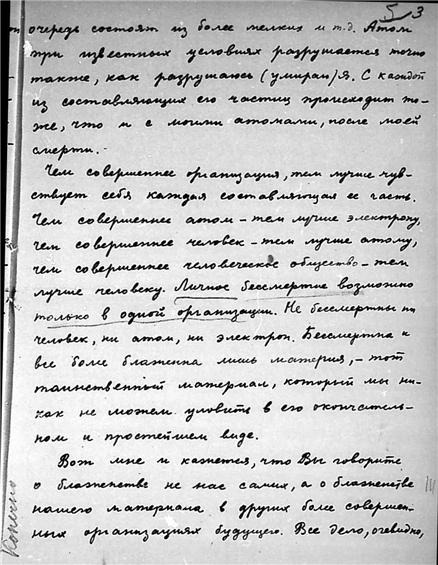 53
очередь состоят из более мелких и т.д. Атом
при известных условиях разрушается точно
также, как разрушаюсь (умираю) я. С каждой
из составляющих его частиц происходит то-
же, что и с моими атомами, после моей
смерти.-
Чем совершеннее организация, тем лучше чув-
ствует себя каждая составляющая ее часть.
Чем совершеннее атом - тем лучше электрону,
чем совершеннее человек - тем лучше атому,
чем совершеннее человеческое общество - тем
лучше человеку. Личное бессмертие возможно
только в одной организации. Не бессмертны ни
человек, ни атом, ни электрон. Бессмертна и
все более блаженна лишь материя, - тот
таинственный материал, который мы ни-
как не можем уловить в его окончатель-
ном и простейшем виде.
Вот мне и кажется, что Вы говорите
о блаженстве не нас самих, а о блаженстве
нашего материала в других более совершен-
ных организациях будущего. Все дело, очевидно,
Конечно